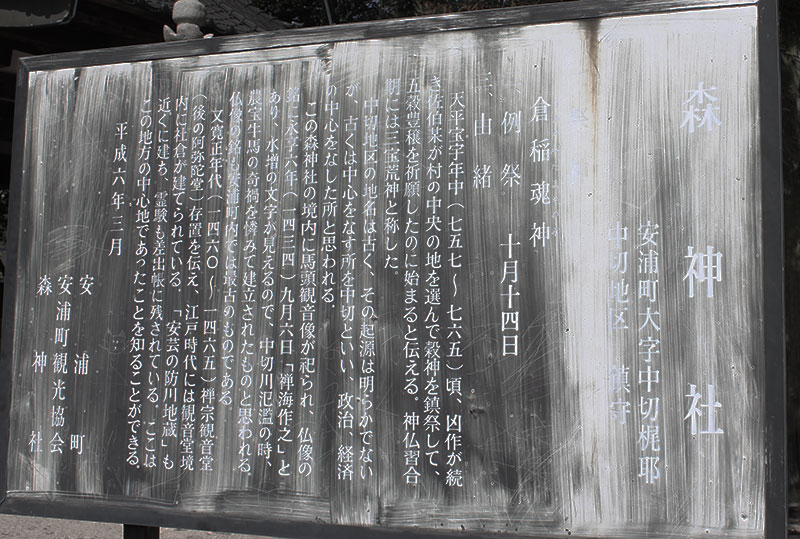 森神社
安浦町大字中切梶耶
中切地区 鎮守
祭神
倉稲魂神
例祭 十月十四日
由緒
天平宝字年中（七五七～七六五）頃、凶作が続
き佐伯某が村の中央の地を選んで穀神を鎮祭して、
五穀豊穣を祈願したのに始まると伝える。神仏習合
期には三宝荒神と称した。
中切地区の地名は古く、その起源は明らかでない
が、古くは中心をなす所を中切といい、政治 経済
の中心をなした所と思われる。
この森神社の境内に馬頭観音像が祀られ、仏像の
銘に永享六年（一四三四）九月六日「禅海作之」と
あり、水増の文字が見えるので、中切川氾濫の時、
農宝牛馬の奇禍を憐みて建立されたものと思われる。
仏像の銘も安浦町内では最古のものである
又寛正年代（一四六〇～一四六五）禅宗観音堂
（後の阿弥陀堂）存置を伝え、江戸時代には観音堂境
内に社倉が建てられている。「安芸の防川地蔵」も
近くに建ち、霊験も差出帳に残されている。ここは
この地方の中心地であったことを知ることができる。
平成六年三月
安浦町
安浦町観光協会
森神社